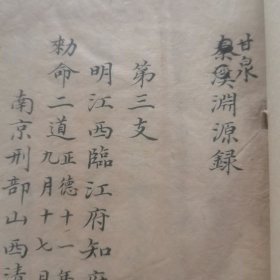 甘泉
桑溪淵源録
第三支
明江西臨江府知府
勑命二道正德十一年
九月十七日
南京刑部山西清